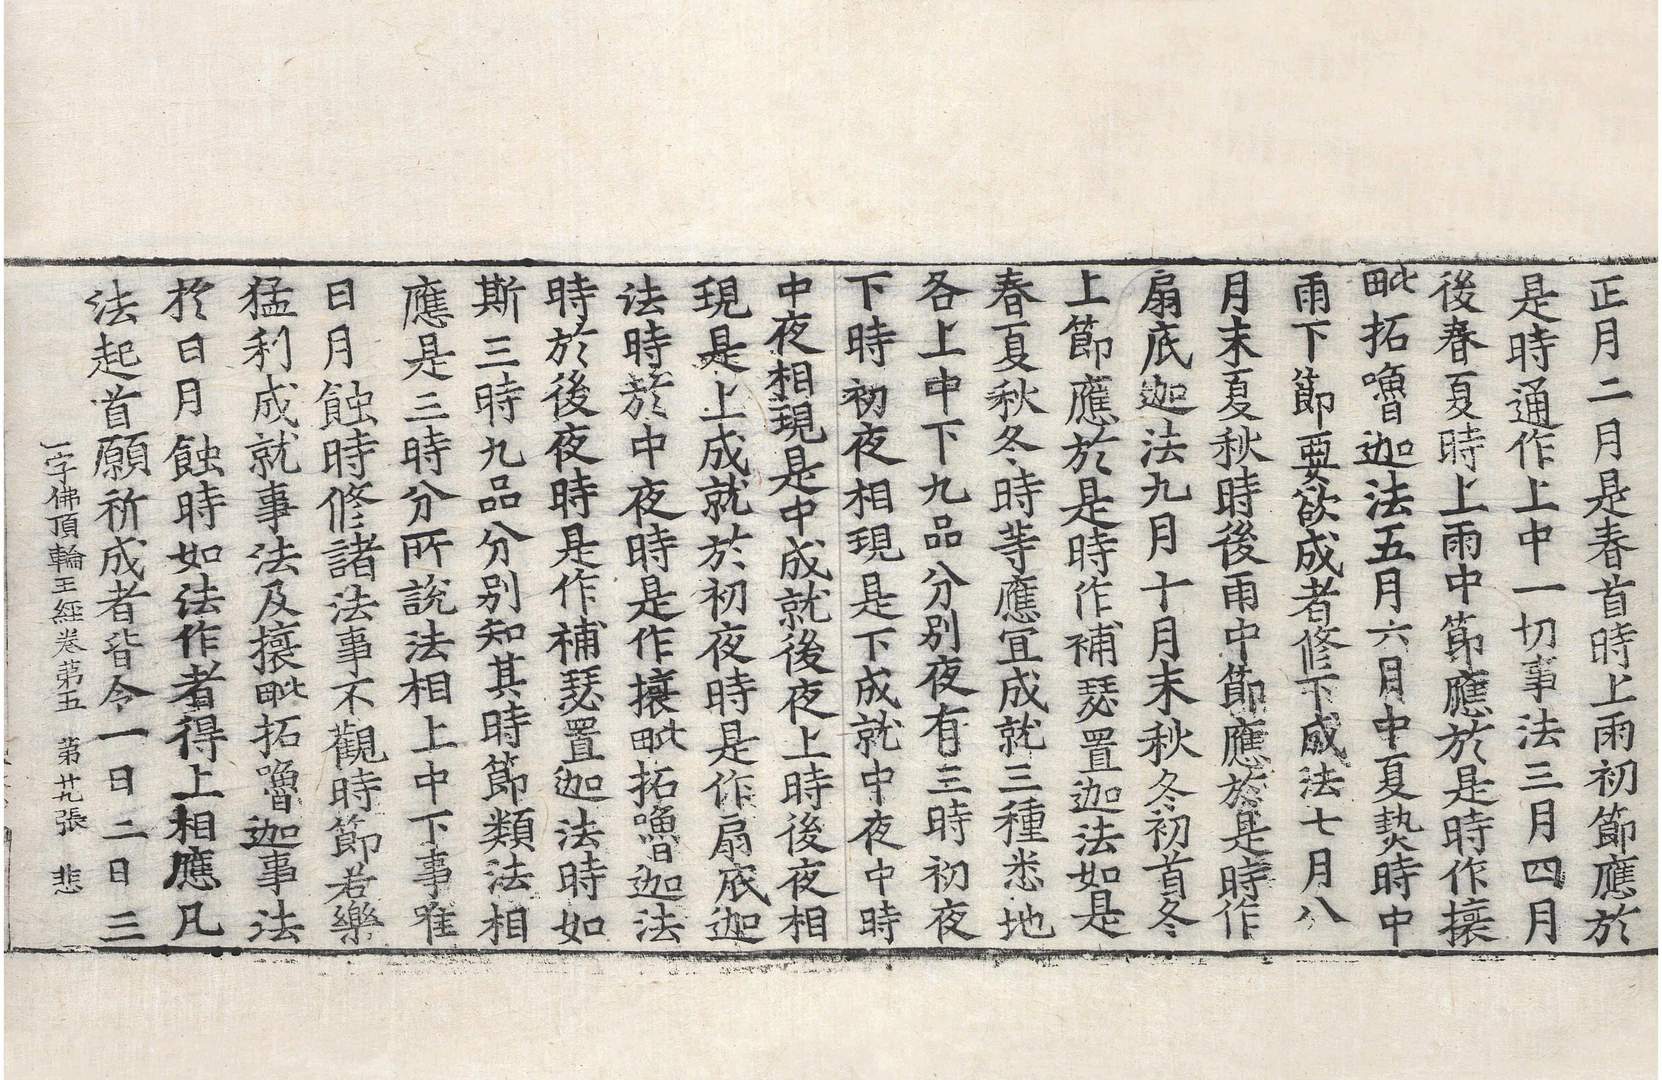 正月二月是春首時上雨初節應於
是時通作上中一切事法三月四月
後春夏時上雨中節應於是時作攘
毗拓嚕迦法五月六月中夏熱時中
雨下節要欲成者修下成法七月八
月末夏秋時後雨中節應於是時作
扇底迦法九月十月末秋冬初首冬
上節應於是時作補瑟置迦法如是
春夏秋冬時等應宜成就三種悉地
各上中下九品分別夜有三時初夜
下時初夜相現是下成就中夜中時
中夜相現是中成就後夜上時後夜相
現是上成就於初夜時是作扇底迦
法時於中夜時是作攘毗拓嚕迦法
時於後夜時是作補瑟置迦法時如
斯三時九品分別知其時節類法相
應是三時分所說法相上中下事唯
日月蝕時修諸法事不觀時節若樂
猛利成就事法及攘毗拓嚕迦事法
於日月蝕時如法作者得上相應凡
法起首願祈成者皆令一日二日三
一字佛頂輪王經卷第五 第廿九張 悲